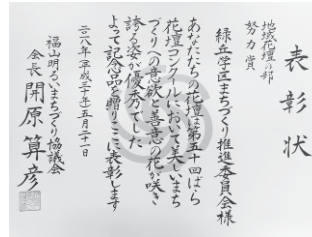 表彰状
地域花壇の部
努力賞
緑丘学区まちづくり推進委員会様
あなたたちの花壇は第五十四ばら
花壇コンクールにおいて美しいまち
づくりへの意欲と善意の花が咲き
誇る姿が優秀でした
よって記念品を贈りここに表彰します
二〇一八年(平成三十年)五月二十一日
福山明るいまちづくり協議会
会長 開原算彦